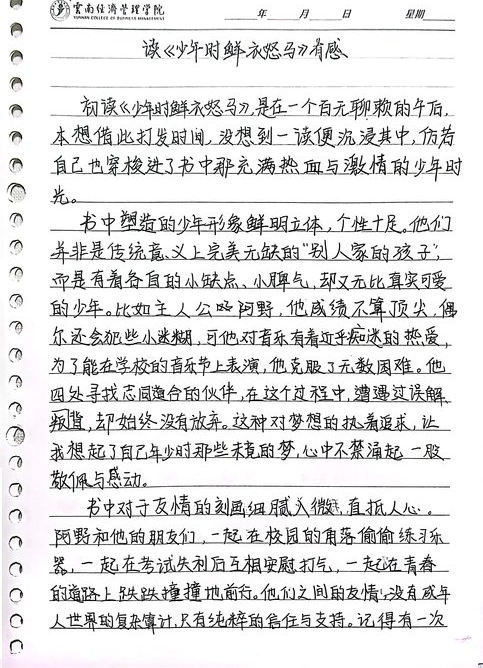 雲南经濟管理学院
YUNNAN COLLEGE OF BUSINESS MANAGEMENT
年 月 日 星期
读《少年时鲜衣怒马》有感
初读《少年时鲜衣怒马》,是在一个百无聊赖的午后,
本想借此打发时间,没想到一读便沉浸其中,仿若
自己也穿梭进了书中那充满热血与激情的少年时
光。
书中塑造的少年形象鲜明立体,个性十足。他们
并非是传统意义上完美无缺的"别人家的孩子",
而是有着各自的小缺点、小脾气,却又无比真实可爱
的少年。比如主人公阿野,他成绩不算顶尖,偶
尔还会犯些小迷糊,可他对音乐有着近乎痴迷的热爱,
为了能在学校的音乐节上表演,他克服了无数困难。他
四处寻找志同道合的伙伴,在这个过程中,遭遇过误解、
叛背,却始终没有放弃。这种对梦想的执着追求,让
我想起了自己年少时那些未竟的梦,心中不禁涌起一股
敬佩与感动。
书中对于友情的刻画细腻入微,直抵人心。
阿野和他的朋友们,一起在校园的角落偷偷练习乐
器,一起在考试失利后互相安慰打气,一起在青春
的道路上跌跌撞撞地前行。他们之间的友情,没有成年
人世界的复杂算计,只有纯粹的信任与支持。记得有一次